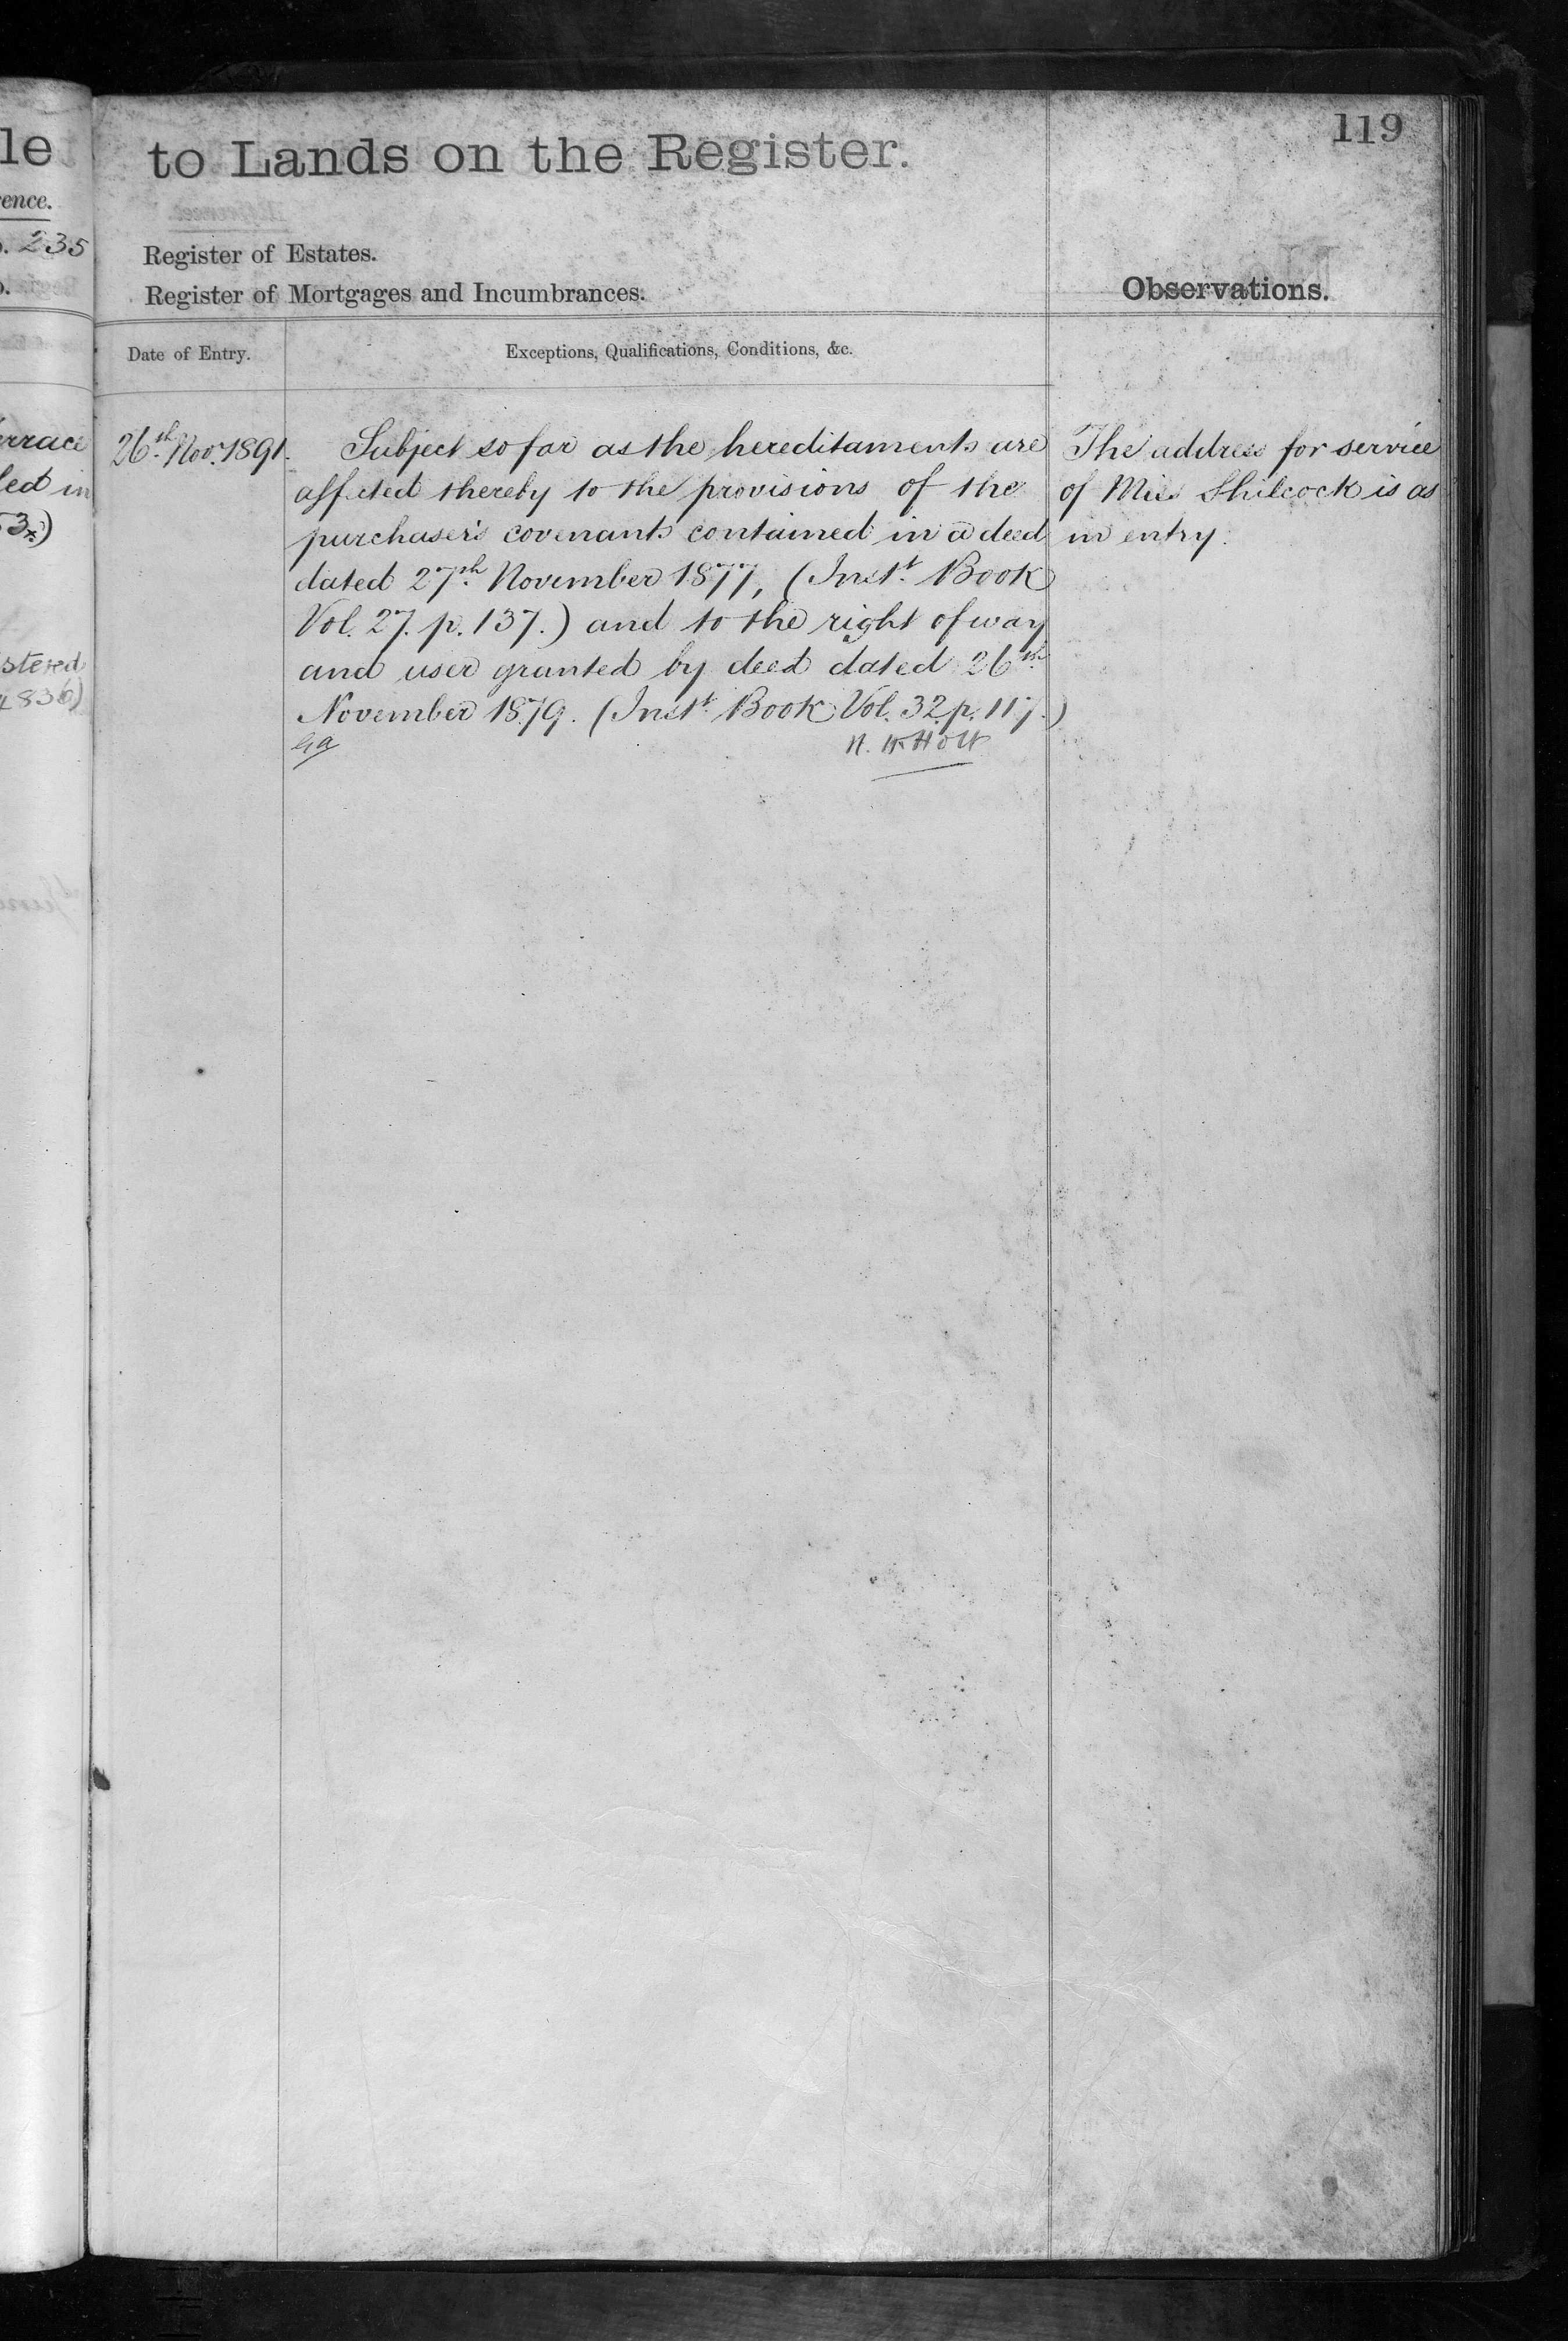 119
le
to Lands on the Register.
ence.
235
Register of Estates.
Register of Mortgages and Incumbrances.
Observations.
Date of Entry.
Exceptions, Qualifications, Conditions, &c.
errace
led in
53.)
stered
4836)
26th Nov. 1891.
Subject so far as the hereditaments are
affected thereby to the provisions of the
purchaser's covenants contained in a deed
dated 27th November 1877, (Inst. Book
Vol. 27. p. 137.) and to the right of way
and user granted by deed dated 26th
November 1879. (Inst. Book Vol. 32 p. 117.)
Holt
The address for service
of Miss Shilcock is as
in entry.